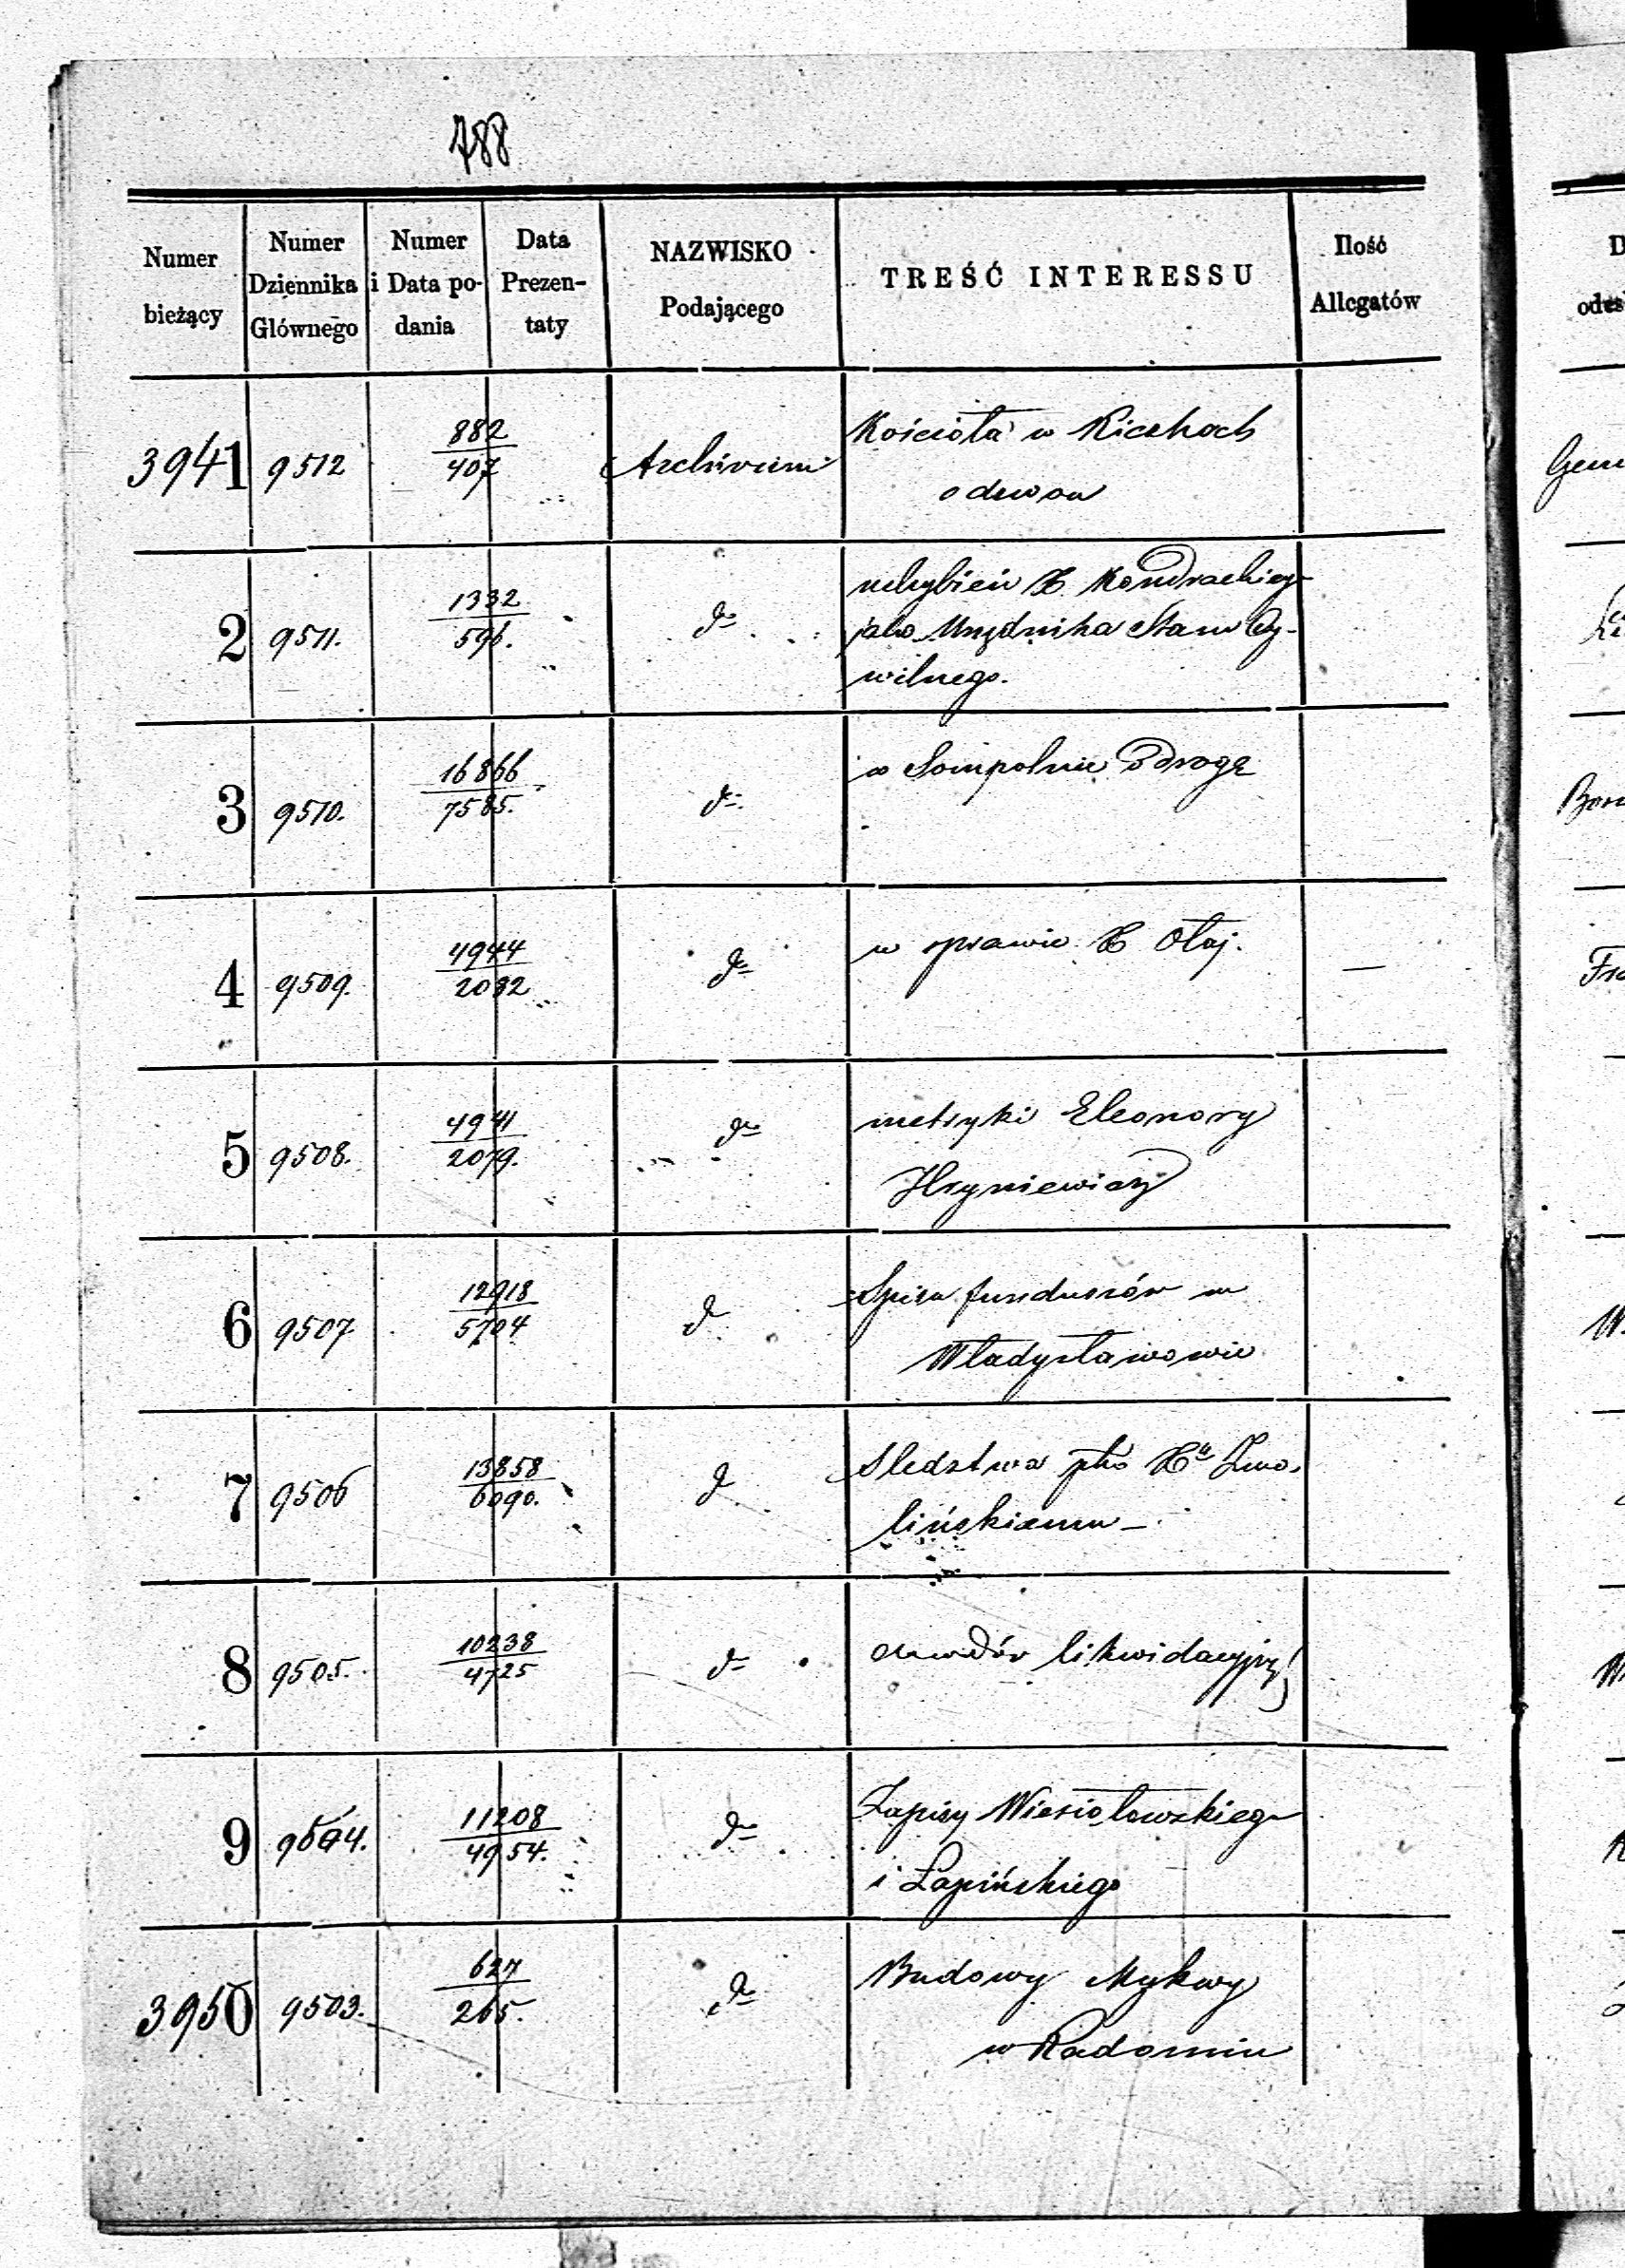 788
Numer bieżący | Numer Dziennika Głównego | Numer i Data podania | Data Prezentaty | NAZWISKO Podającego | TREŚĆ INTERESSU | Ilość Allegatów
3941 9512 882/407 Archivum Kościoła w
2 9511. 1332/596. do uchybień X. Kondrackieg
jako Urzędnika Stanu Cy-
wilnego.
3 9510. 16866/7585. do w Sompolnie o drogę
4 9509. 4944/2082 do w sprawie X —
5 9508. 4941/2079. do metryki Eleonory
Hryniewicz
6 9507 12918/5704 do Spisu funduszów w
Władysławowie
7 9506 13858/6090. do Sledztwa pko Xu Zwo-
lińskiemu —
8 9505. 10238/4725 do likwidacyjny
9 9504. 11208/4954. do Zapisy Wiesiołowskiego
i Łapińskiego
3950 9503. 627/265. do Budowy Mykwy
w Radominie